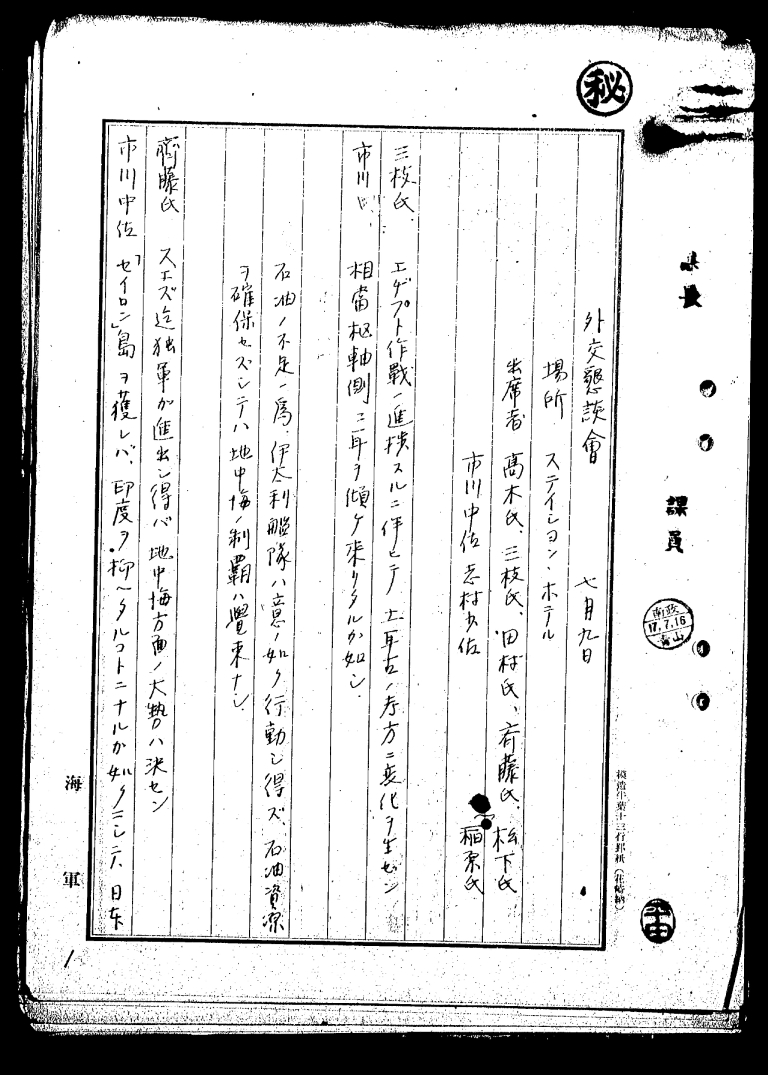 秘
課長
課員
南政
17.7.16
青山
平田
外交懇談會 七月九日
場所 ステイション・ホテル
出席者 髙木氏、三枝氏、田村氏、斉藤氏、松下氏、
市川中佐 志村少佐 稲原氏
三枝氏、 エヂプト作戰ノ進捗スルニ伴ヒテ土耳古ノ考方ニ変化ヲ生ゼン
市川〃、 相當枢軸側ニ耳ヲ傾ケ来リタルが如シ.
石油ノ不足ノ為、伊太利艦隊ハ意ノ如ク行動シ得ズ、石油資源
ヲ確保セズシテハ地中海ノ制覇ハ覺束ナシ
齊藤氏 スエズ迄独軍が進出シ得バ地中海方面ノ大勢ハ決セン
市川中佐 「セイロン」島ヲ獲レバ、印度ヲ抑ヘタルコトニナルが如クニシテ、日本
海軍
1